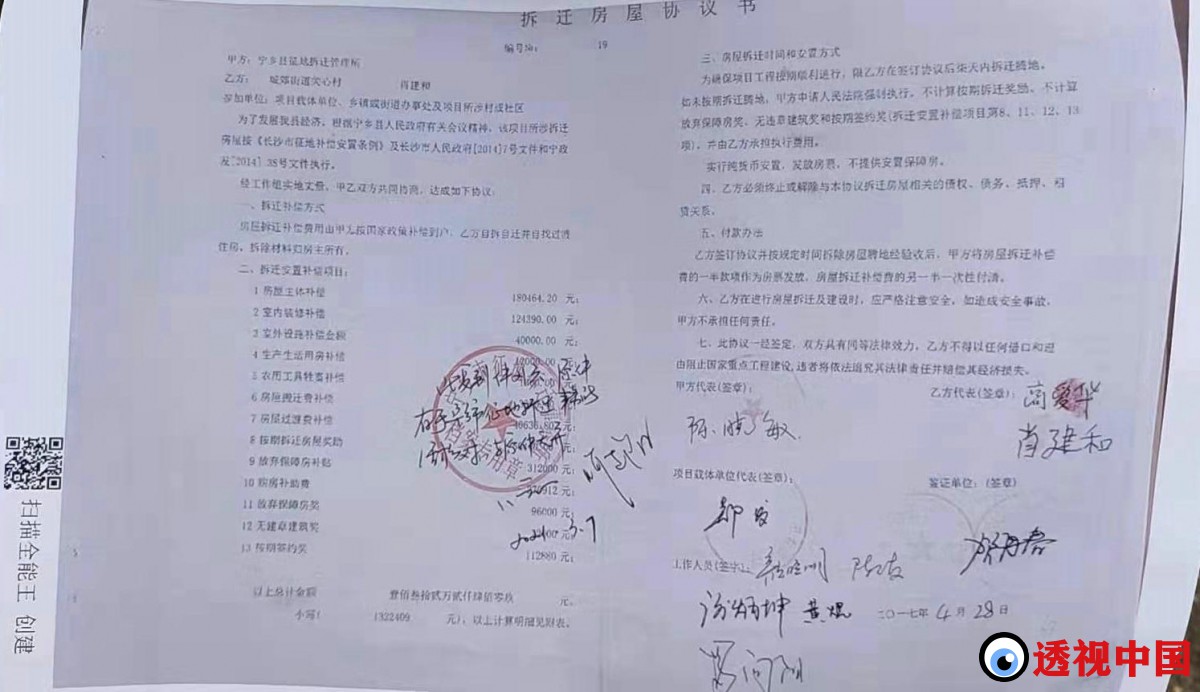 拆迁房屋协议书
编号编： 19
甲方：宁乡县征地拆迁管理所
乙方： 城郊街道尖心村 肖建和
参加单位：项目载体单位、乡镇或街道办事处及项目所涉村或社区
为了发展我县经济，根据宁乡县人民政府有关会议精神，该项目所涉拆迁
房屋按《长沙市征地补偿安置条例》及长沙市人民政府[2014]7号文件和宁政
发[2014] 35号文件执行。
经工作组实地丈量，甲乙双方共同协商，达成如下协议：
一、拆迁补偿方式
房屋拆迁补偿费用由甲方按国家政策补偿到户，乙方自拆自迁并自找过渡
住房，拆除材料归房主所有。
二、拆迁安置补偿项目：
1 房屋主体补偿 180464.20 元；
2 室内装修补偿 124390.00 元；
3 室外设施补偿金额 40000.00 元；
4 生产生活用房补偿 元；
5 农用工具牲畜补偿
6 房屋搬迁费补偿
7 房屋过渡费补偿
8 按期拆迁房屋奖励
9 放弃保障房补贴 312000 元；
10 购房补助费 元；
11 放弃保障房奖 96000 元；
12 无违章建筑奖 元；
13 按期签约奖 112880 元；
以上总计金额 壹佰叁拾贰万贰仟肆佰零玖 元，
小写： 1322409 元），以上计算明细见附表。
三、房屋拆迁时间和安置方式
为确保项目工程按期顺利进行，限乙方在签订协议后柒天内拆迁腾地。
如未按期拆迁腾地，甲方申请人民法院强制执行，不计算按期拆迁奖励、不计算
放弃保障房奖、无违章建筑奖和按期签约奖(拆迁安置补偿项目第8、11、12、13
项)，并由乙方承担执行费用。
实行纯货币安置，发放房票，不提供安置保障房。
四、乙方必须终止或解除与本协议拆迁房屋相关的债权、债务、抵押、租
赁关系。
五、付款办法
乙方签订协议并按规定时间拆除房屋腾地经验收后，甲方将房屋拆迁补偿
费的一半款项作为房票发放，房屋拆迁补偿费的另一半一次性付清。
六、乙方在进行房屋拆迁及建设时，应严格注意安全，如造成安全事故，
甲方不承担任何责任。
七、此协议一经签定，双方具有同等法律效力，乙方不得以任何借口和理
由阻止国家重点工程建设，违者将依法追究其法律责任并赔偿其经济损失。
甲方代表(签章)： 乙方代表(签章)：高爱华
陈晓敏 肖建和
项目载体单位代表(签章)： 鉴证单位：(签章)
工作人员(签字)：
黄焜 二〇一七年4月28日
扫描全能王 创建
透视中国